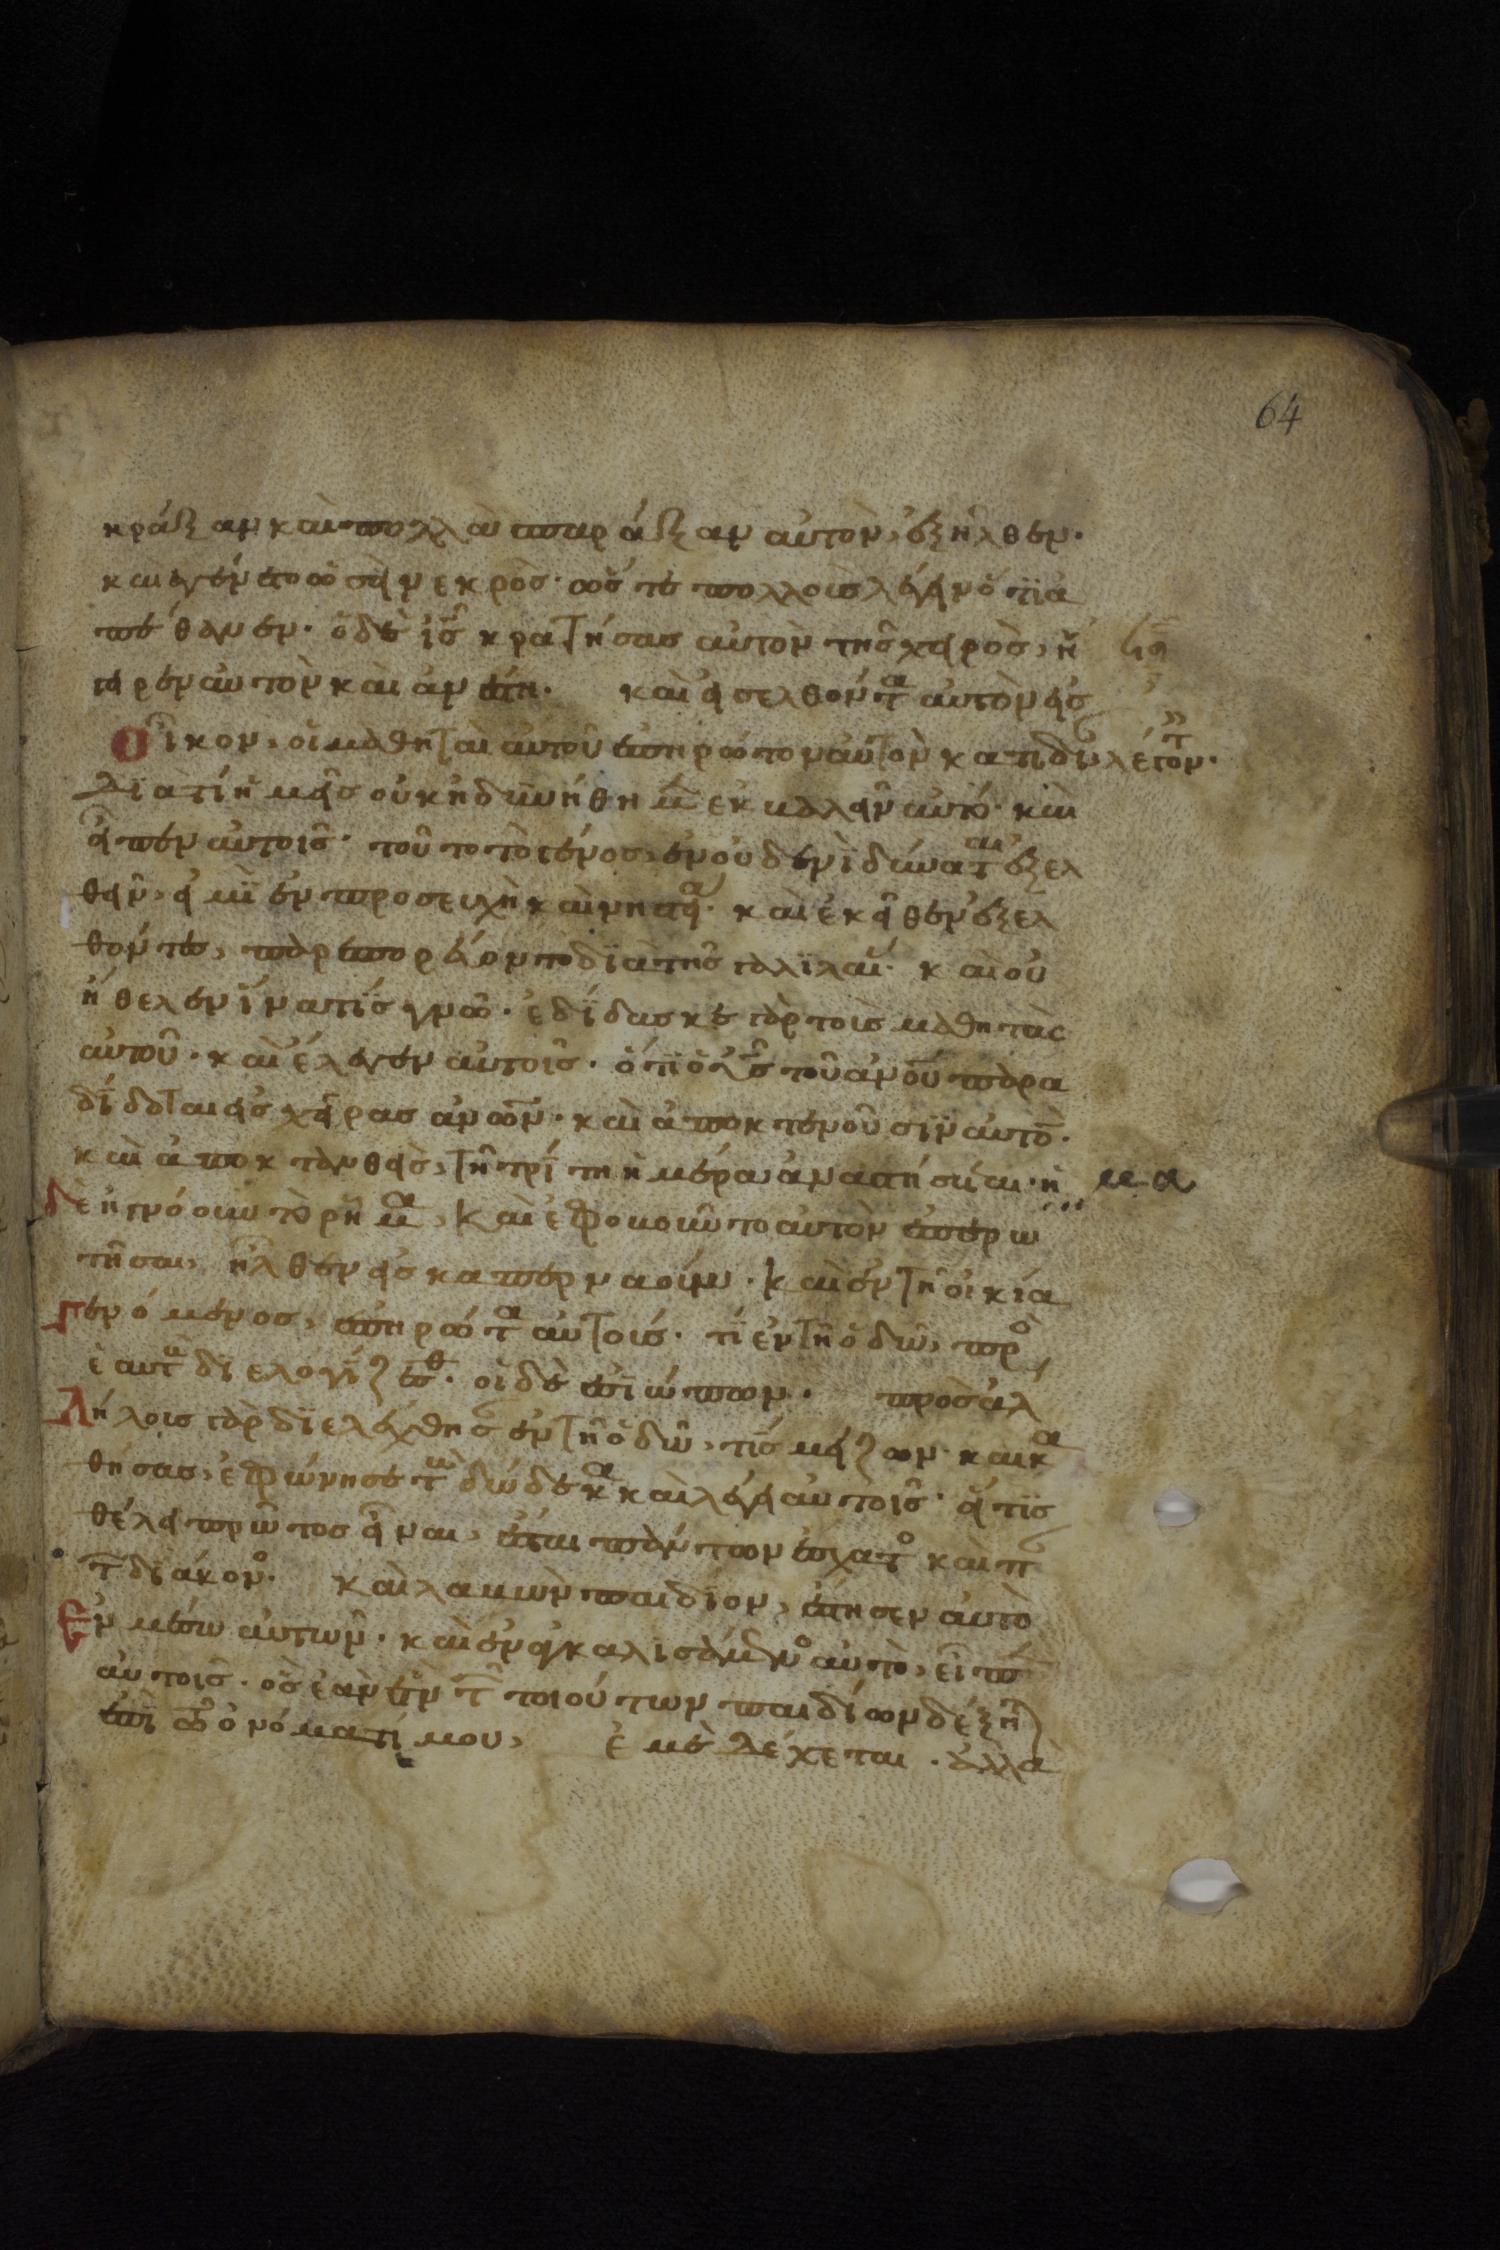 64
κράξαν καὶ πολλὰ σπαράξαν αὐτὸν, ἐξῆλθεν·
καὶ ἐγένετο ὡσὴ νεκρὸς· ὥστε πολλοὺς λέγειν ὅτι ἀ
πέθανεν· ὁ δὲ ις κρατήσας αὐτὸν τῆς χειρὸς, ἤ
γειρεν αὐτὸν καὶ ἀνέστη· καὶ εἰσελθόντα αὐτὸν εἰς
οἶκον, οἱ μαθηταὶ αὐτοῦ ἐπηρώτον αὐτὸν κατιδίαν λέγοντ
διατί ἡμεῖς οὐκ ἠδυνήθημ ἐκβαλεῖν αὐτό· καὶ
εἶπεν αὐτοῖς· τοῦτο τὸ γένος, ἐν οὐδενὶ δύναται ἐξελ
θεῖν, εἰ μὶ ἐν προσευχὴ καὶ νηστεία· καὶ ἐκεῖθεν ἐξελ
θόντες, παρεπορεύοντο διὰ τῆς γαλιλαί· καὶ οὐ
ἤθελεν ἵνα τὶς γνῶ· ἐδίδασκε γὰρ τοὺς μαθητὰς
αὐτοῦ· καὶ ἔλεγεν αὐτοῖς· ὅτι ὁ υς τοῦ ανου παρα
δίδοται εἰς χεῖρας ανων· καὶ ἀποκτενοῦσιν αὐτὸ·
καὶ ἀποκτανθεὶς, τῆ τρίτη ἡμέρα ἀναστήσεται· ἡ
δὲ ἠγνόουν τὸ ρῆμα, καὶ ἐφοβοῦντο αὐτὸν ἐπερω
τῆσαι, ἦλθεν εἰς καπερναούμ· καὶ ἐν τῆ οἰκία
γενόμενος, ἐπηρώτα αὐτοὺς· τί ἐν τῆ ὁδῶ, πρὸ
ἑαυτ διελογίζεσθ· οἱ δὲ ἐσιώπων· πρὸς ἀλ
λήλους γὰρ διελέχθησ ἐν τῆ ὁδῶ, τίς μείζων· καὶ κα
θήσας, ἐφώνησε τ δώδεκα καὶ λέγει αὐτοῖς· εἴ τις
θέλει πρῶτος εἶναι, ἔσται πάντων ἔσχατο καὶ π
τ διάκονο· καὶ λαβὼν παιδίον, ἔστησεν αὐτὸ
ἐν μέσω αὐτῶν· καὶ ἐναγκαλισάμενο αὐτὸ, εἶπε
αὐτοῖς· ὃς ἐὰν ἓν τ τοιούτων παιδίων δέξη
ἐπὶ τῶ ὀνόματί μου, ἐμὲ δέχεται· ἀλλὰ